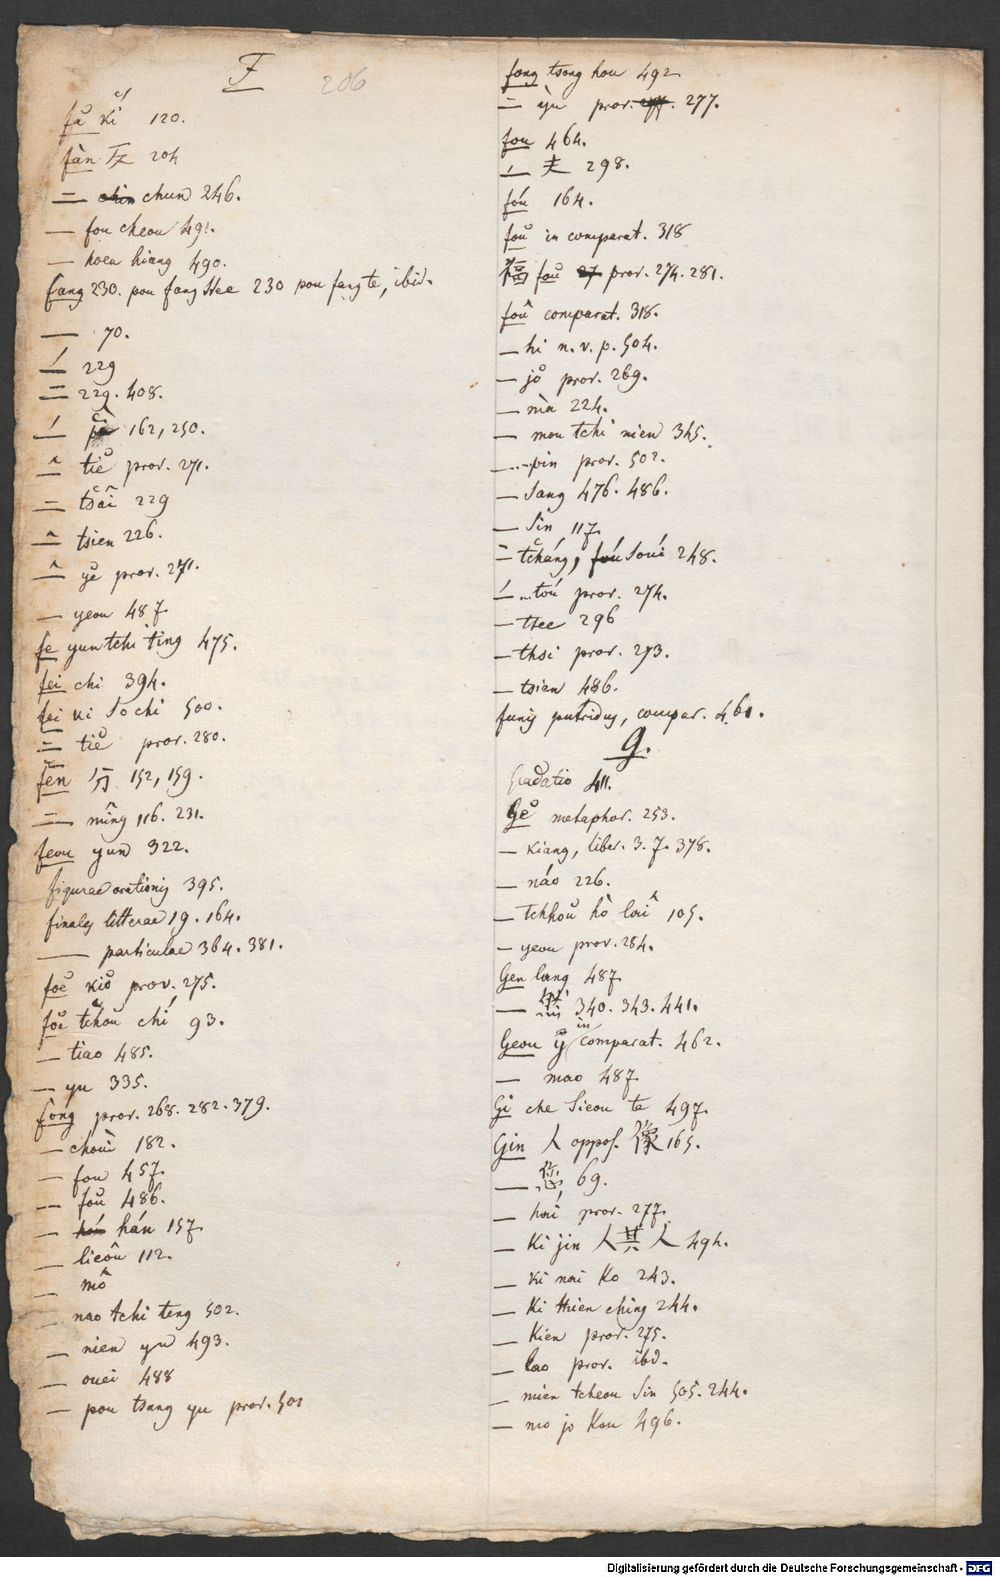 F
206
fă kí 120.
fàn 204
= chin chun 246.
— fou cheou 491.
— hoen hiang 490.
fang 230. pou fang ttee 230 pou fang te, ibid.
— 70.
— 229
= 229. 408.
— 162, 250.
— tiĕ prov. 271.
= tsâi 229
— tsien 226.
— yĕ prov. 271.
— yeou 487.
fe yun tchi ting 475.
fei chi 394.
fei ki so chi 500.
= tiĕ prov. 280.
fēn 152, 159.
= mîng 116. 231.
feou yun 322.
figurae orationis 395.
finales litterae 19. 164.
— particulae 364. 381.
foĕ kiŏ prov. 275.
foĕ tchoŭ chí 93.
— tiao 485.
— yu 335.
fong prov. 268. 282. 379.
— chouì 182.
— fou 457.
— foŭ 486.
— hán 157.
— lieôu 112.
— mô
— nao tchi teng 502.
— nien yu 493.
— ouei 488
— pou tsang yu prov. 501
fong tsong hou 492
= yu prov. 277.
fou 464.
— 夫 298.
foú 164.
foŭ in comparat. 318
福 foŭ prov. 274. 281.
foû comparat. 318.
— hi n. v. p. 504.
— jŏ prov. 269.
— mà 224.
— mou tchi mien 345.
— pin prov. 502.
— sang 476. 486.
— sin 117.
= tcháng, foú soui 248.
— toú prov. 274.
— tsee 296
— thsi prov. 273.
— tsian 486.
funis putridus, compar. 461.
G.
Gradatio 411.
Gĕ metaphor. 253.
— kiang, liber. 3. 7. 378.
— náo 226.
— tchhoŭ hò laî 105.
— yeou prov. 284.
Gen lang 487.
— 340. 343. 441.
Geou in comparat. 462.
— mao 487.
Gi che sieou te 497.
Gin 人 oppos. 165.
— 69.
— hai prov. 277.
— Ki jin 人其人 494.
— ki nai ko 243.
— Ki thien ching 244.
— Kien prov. 275.
— lao prov. ibid.
— mien tcheou sin 505. 244.
— mo jo Kou 496.
Digitalisierung gefördert durch die Deutsche Forschungsgemeinschaft - DFG